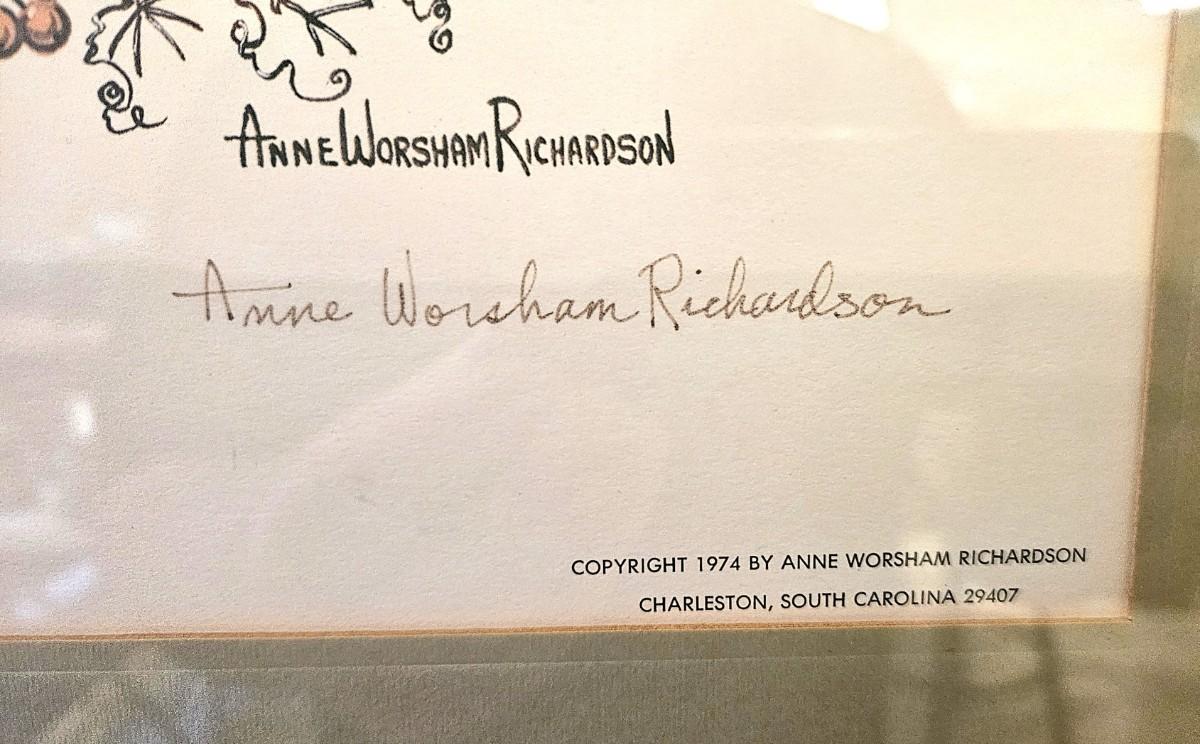 ANNE WORSHAM RICHARDSON
Anne Worsham Richardson
COPYRIGHT 1974 BY ANNE WORSHAM RICHARDSON
CHARLESTON, SOUTH CAROLINA 29407